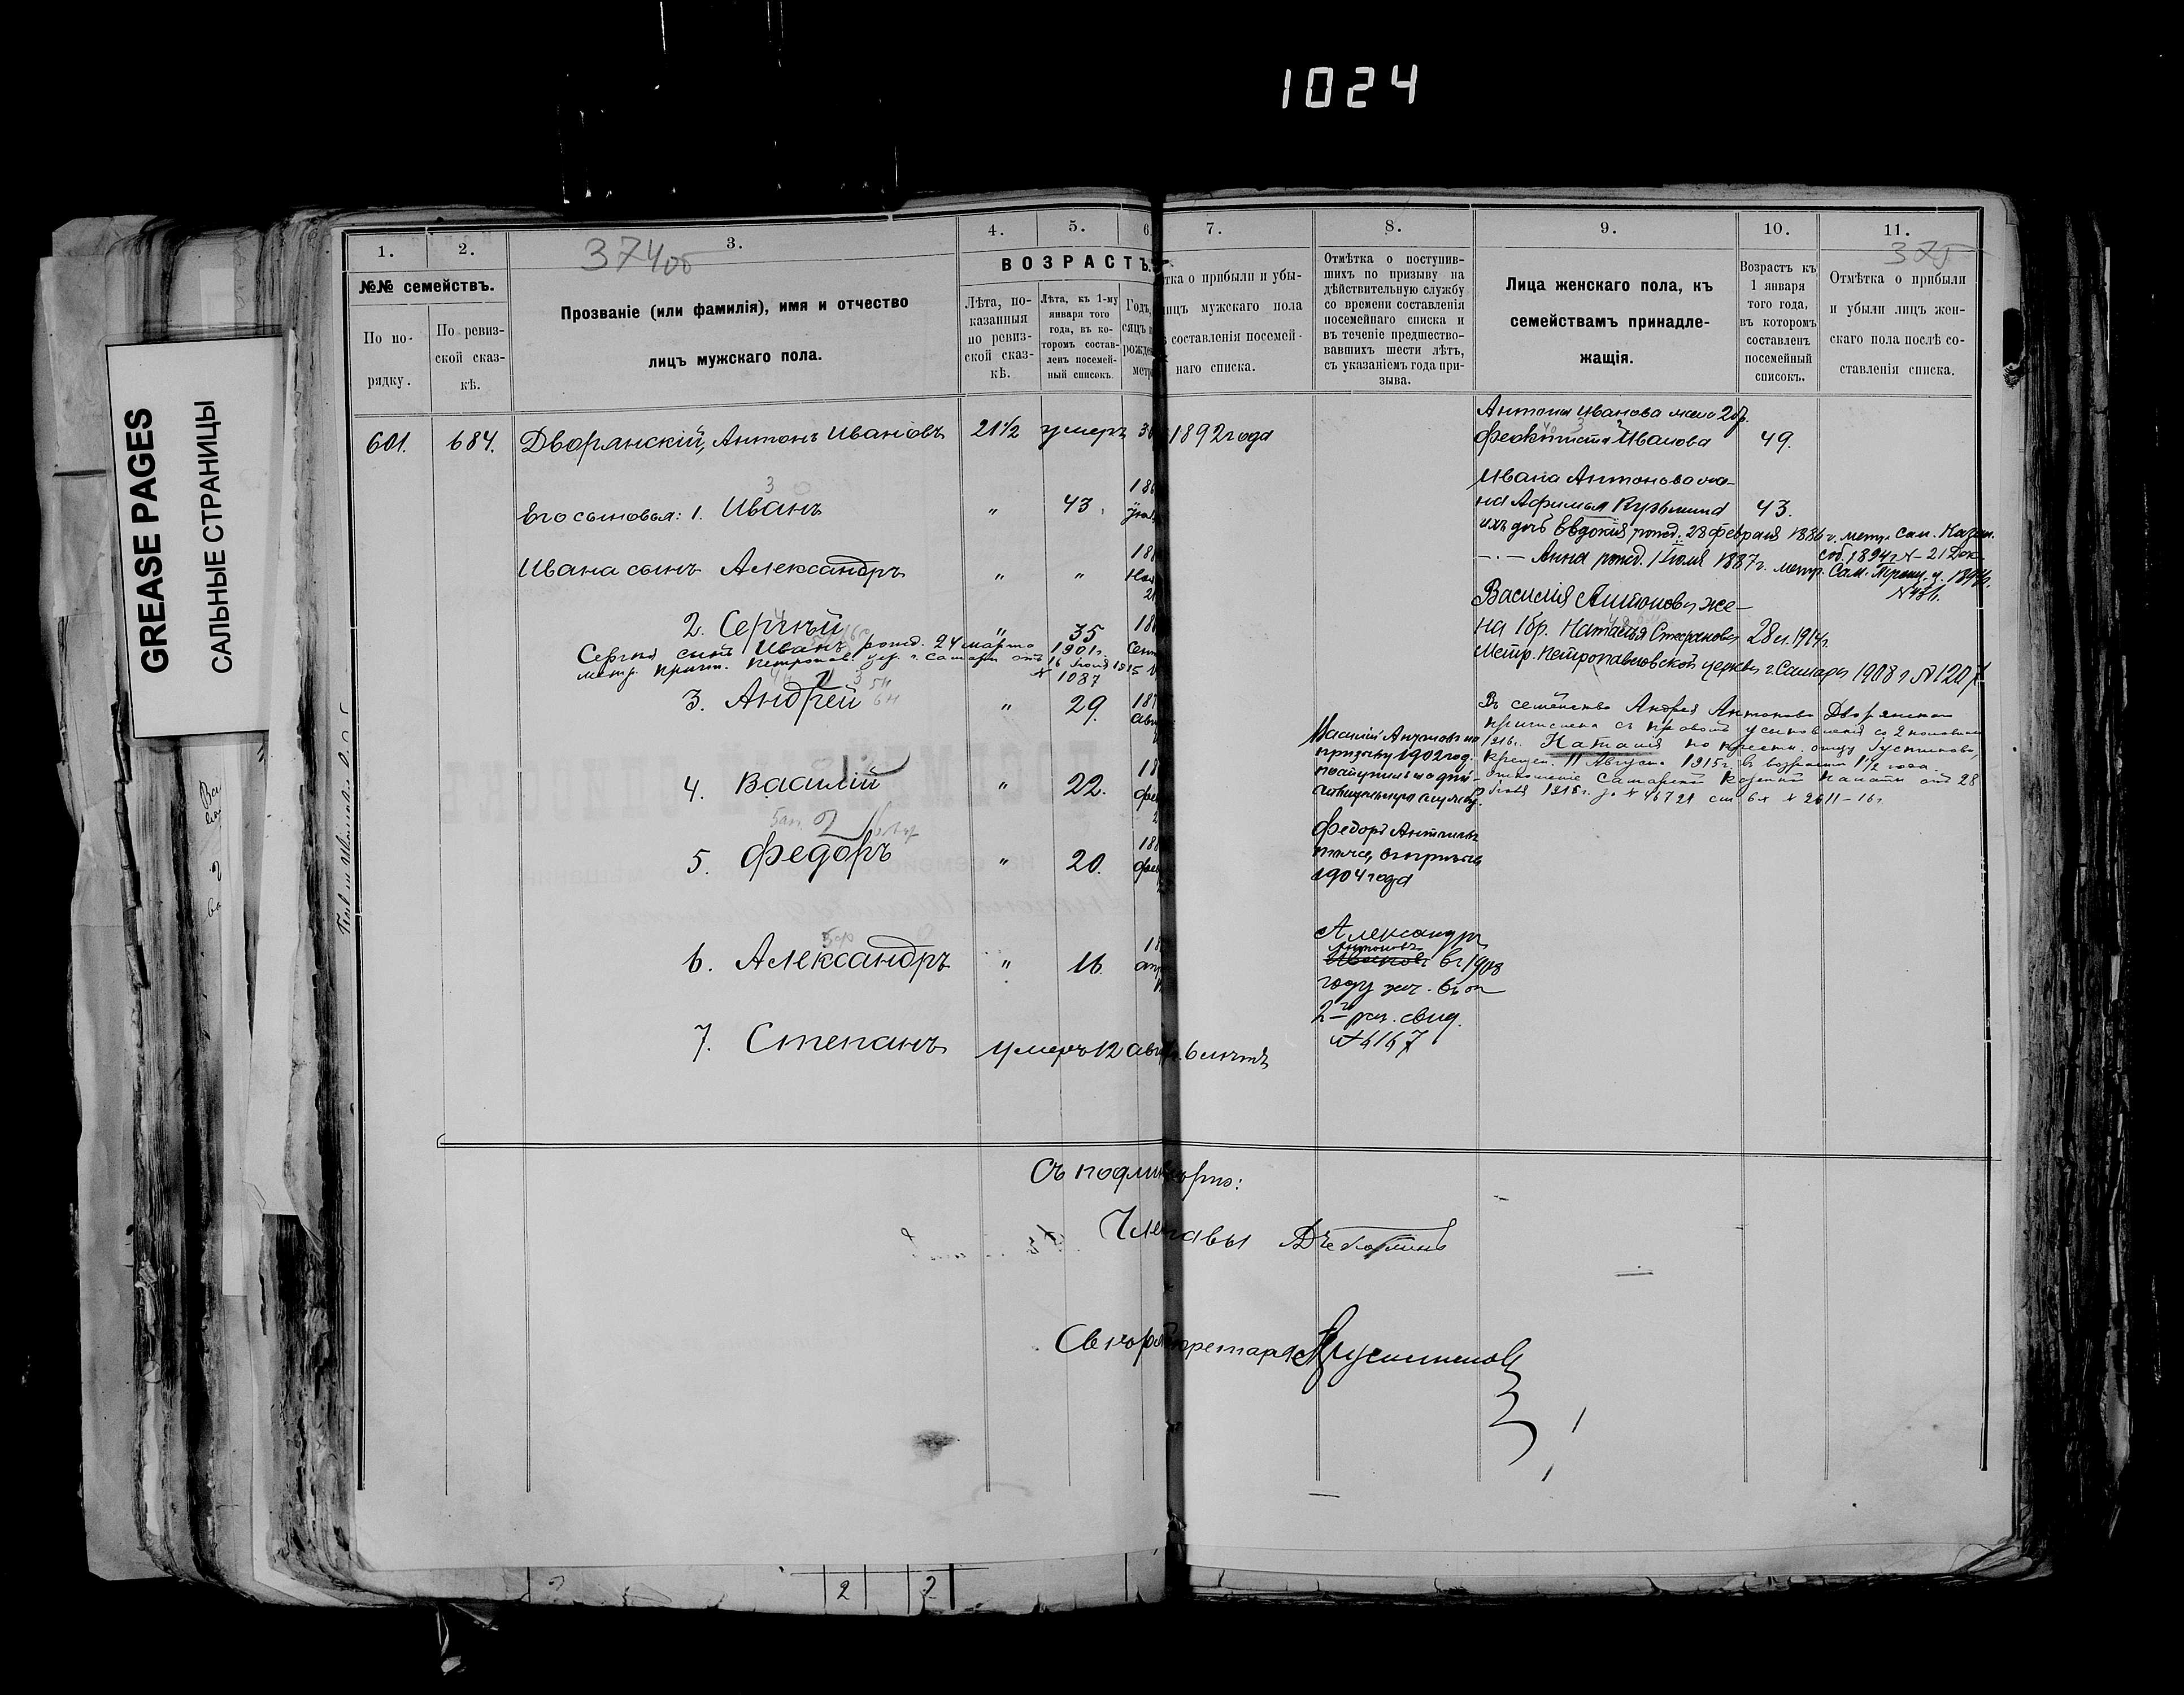 1024
GREASE PAGES
САЛЬНЫЕ СТРАНИЦЫ
374об
375
1. 2. 3. 4. 5. 6. 7. 8. 9. 10. 11.
№№ семействъ.
По по-
рядку.
По ревиз-
ской сказ-
кѣ.
Прозваніе (или фамилія), имя и отчество
лицъ мужскаго пола.
ВОЗРАСТЪ.
Лѣта, по-
казанныя
по ревиз-
ской сказ-
кѣ.
Лѣта, къ 1-му
января того
года, въ ко-
торомъ состав-
ленъ посемей-
ный списокъ.
Годъ,
сяцъ
рожде
метр
тка о прибыли и убы-
ицъ мужскаго пола
составленія посемей-
наго списка.
Отмѣтка о поступив-
шихъ по призыву на
дѣйствительную службу
со времени составленія
посемейнаго списка и
въ теченіе предшество-
вавшихъ шести лѣтъ,
съ указаніемъ года при-
зыва.
Лица женскаго пола, къ
семействамъ принадле-
жащія.
Возрастъ къ
1 января
того года,
въ которомъ
составленъ
посемейный
списокъ.
Отмѣтка о прибыли
и убыли лицъ жен-
скаго пола послѣ со-
ставленія списка.
601. 684. Дворянскій, Антонъ Ивановъ 21½ умеръ 30 1892 года
Антона Иванова жена 2 бр.
Феоктиста Иванова 49.
Его сыновья: 1. Иванъ " 43. 186
Ивана Антонова же-
на Афимья Курьмина 43.
ихъ дочь Евдокия рожд. 28 февраля 1886 г. метр. Сам. Казан.
соб. 1894 г. № 21 Док.
Анна рожд. 1 Июля 1887 г. метр. Сам. Троиц. ц.
Ивана сынъ Александръ " " 188
Ноя
21
2. Сергѣй " 35 186
Сент
Сергѣя сынъ Иванъ рожд. 24 марта 1901 г.
метр. причт. Петропав. цер. г. Самары отъ 16 Июля 1915
№ 1087
Василія Антонова же-
на 1 бр. Наталья Стефанова 28 л. 1914 г.
Метр. Петропавловской церкви г. Самары 1908 г. № 120
3. Андрей " 29. 187
авг
Въ семейство Андрея Антонова Дворянскаго
причислена съ правомъ усыновленія со 2 половины
1916 г. Наталія по крестн. отцу Іустинова,
крещен. 11 Августа 1915 г. въ возрастѣ 1½ года
отношеніе Самарской Казенной Палаты отъ 28
Июля 1916 г. за № 46721 ст. вх № 2611-16 г.
4. Василій " 22. 18
фев
2
Василій Антоновъ по
призыву 1902 год.
поступилъ на дѣй-
ствительную службу.
5. Федоръ " 20. 188
фев
Федоръ Антоновъ
тоже, въ призывъ
1904 года
6. Александръ " 16 18
апр
Александръ
Антоновъ
Ивановъ въ 1908
году зач. въ оп.
2 раз. свид.
№ 6167
7. Степанъ умеръ 12 авг. 6 лѣтъ
Съ подлин вѣрно:
Членъ управы
Свѣрялъ Секретарь
2 2